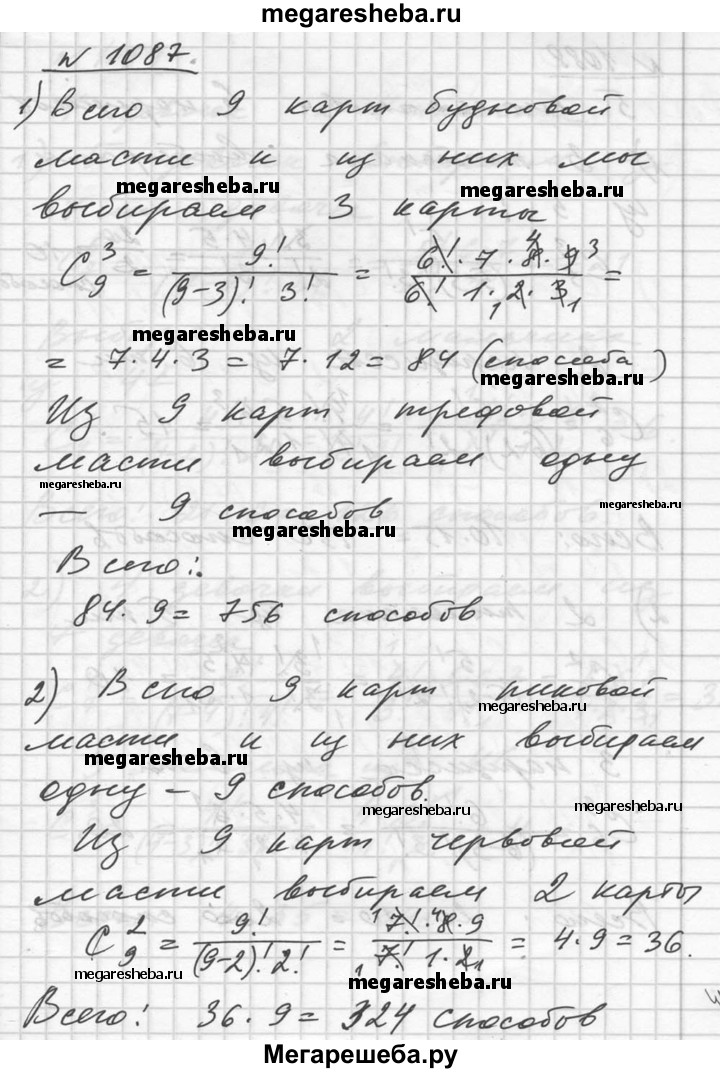 megaresheba.ru
№ 1087.
1) Всего 9 карт бубновой
масти и из них мы
megaresheba.ru megaresheba.ru
выбираем 3 карты
C₉³ = 9!/((9-3)! 3!) = (6! · 7 · 8 4 · 9 3)/(6! 1 · 2 1 · 3 1) =
megaresheba.ru
= 7·4·3 = 7·12 = 84 (способа)
megaresheba.ru
Из 9 карт трефовой
масти выбираем одну
megaresheba.ru megaresheba.ru
— 9 способов
megaresheba.ru
Всего:
84·9 = 756 способов
2) Всего 9 карт пиковой
megaresheba.ru
масти и из них выбираем
megaresheba.ru
одну – 9 способов.
megaresheba.ru megaresheba.ru
Из 9 карт червовой
масти выбираем 2 карты
C₉² = 9!/((9-2)! 2!) = (1 7! · 8 4 · 9)/(1 7! 1 · 2 1) = 4·9 = 36.
megaresheba.ru megaresheba.ru
Всего: 36·9 = 324 способов
Мегарешеба.ру